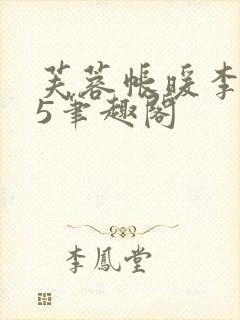 芙蓉帐暖李
5笔趣阁
李鳳堂